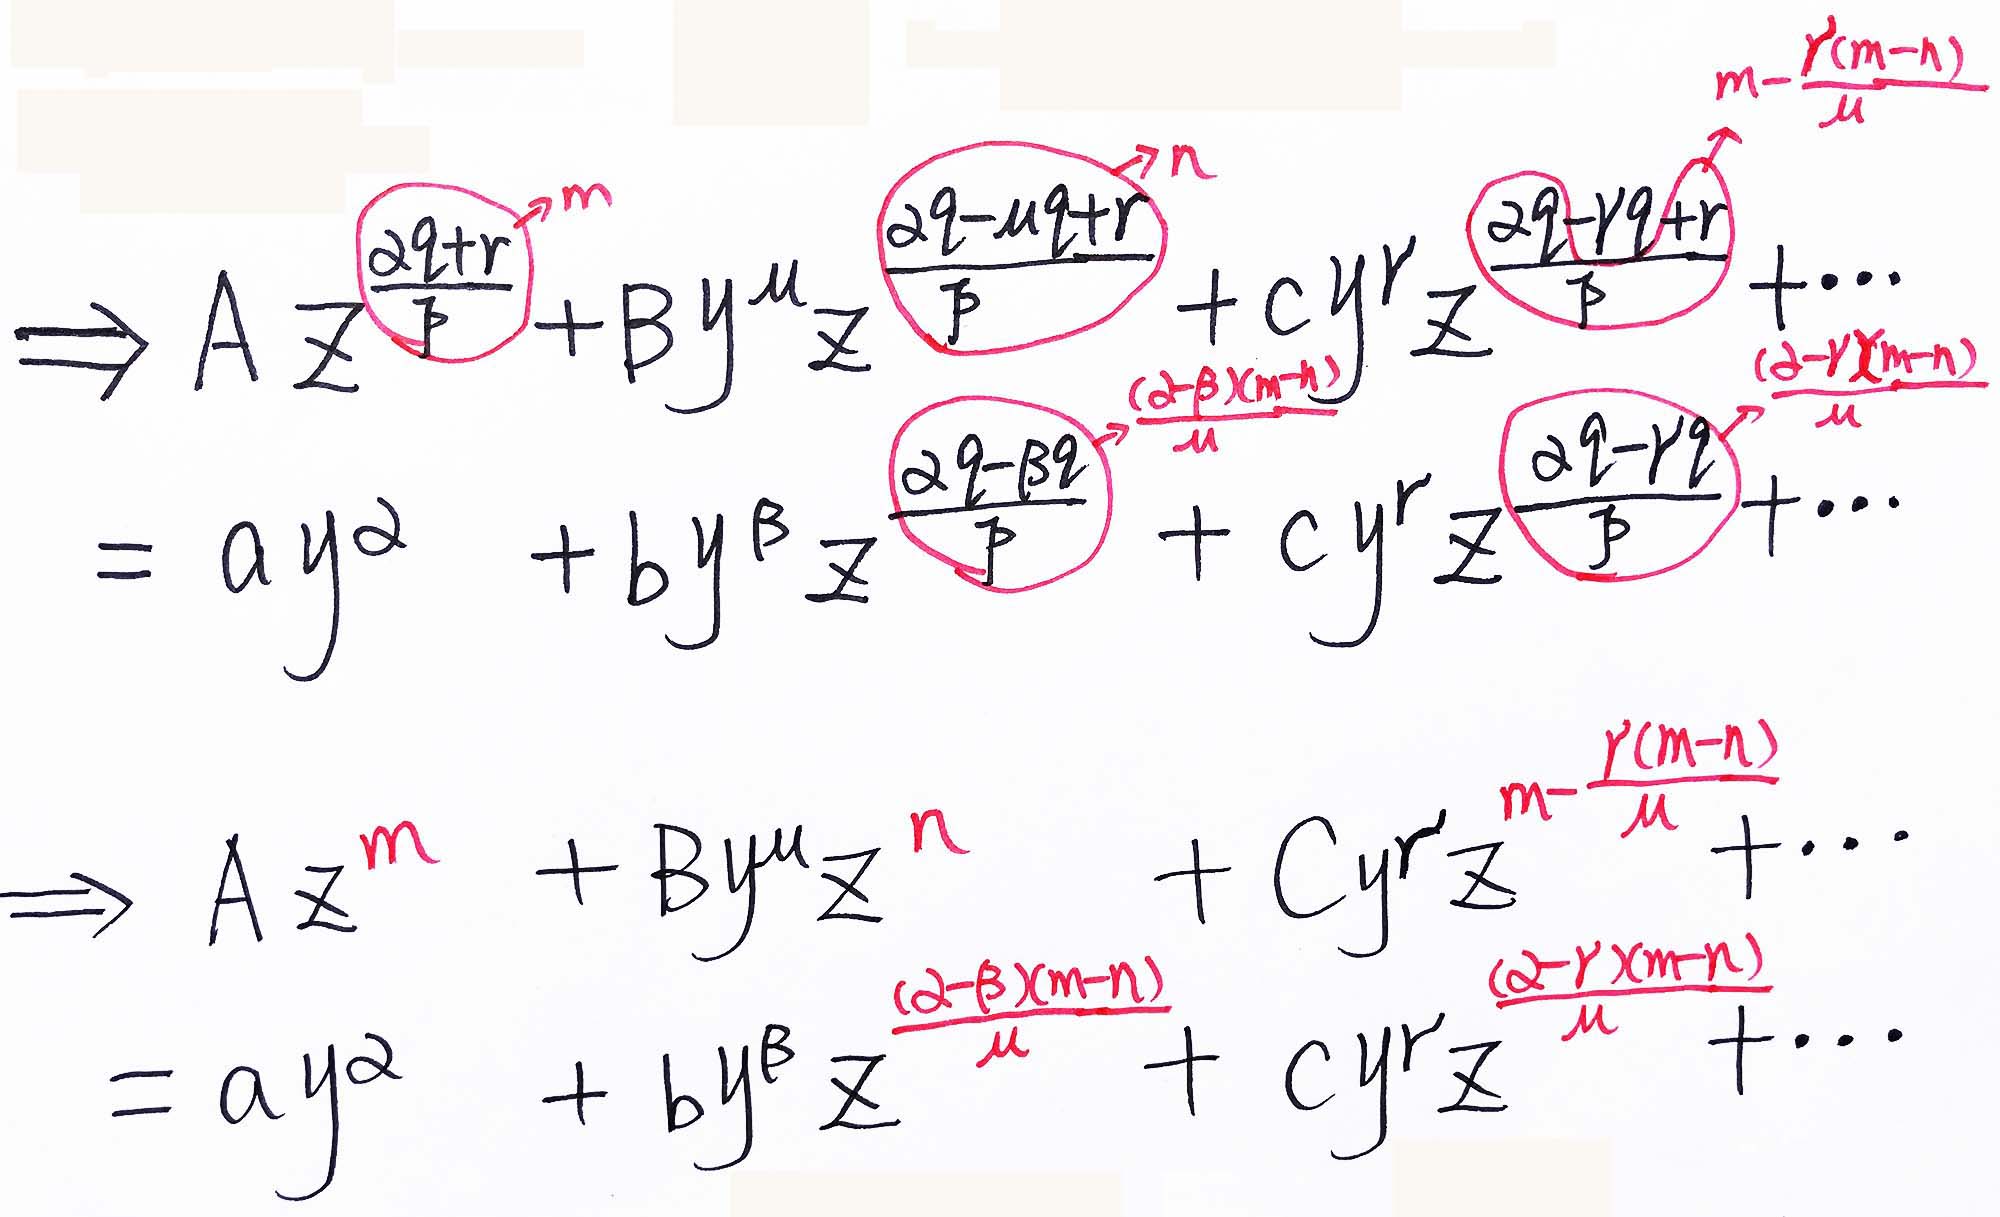 ⇒ A z^((αq+r)/p) → m + B y^μ z^((αq-μq+r)/p) → n + c y^γ z^((αq-γq+r)/p) → m-γ(m-n)/μ + ···
= a y^α + b y^β z^((αq-βq)/p) → (α-β)(m-n)/μ + c y^γ z^((αq-γq)/p) → (α-γ)(m-n)/μ + ···
⇒ A z^m + B y^μ z^n + C y^γ z^(m-γ(m-n)/μ) + ···
= a y^α + b y^β z^((α-β)(m-n)/μ) + c y^γ z^((α-γ)(m-n)/μ) + ···